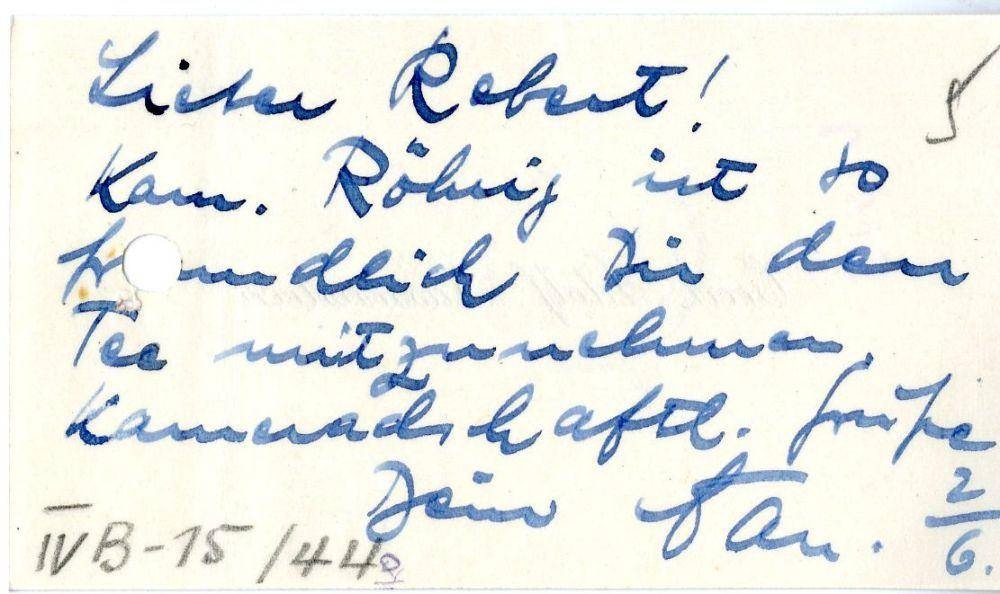 Lieber Robert!
Kam. Röhrig ist so
freundlich Dir den
Tee mitzunehmen.
Kameradschaftl. Grüße
Dein
2/6.
IV B-15/44